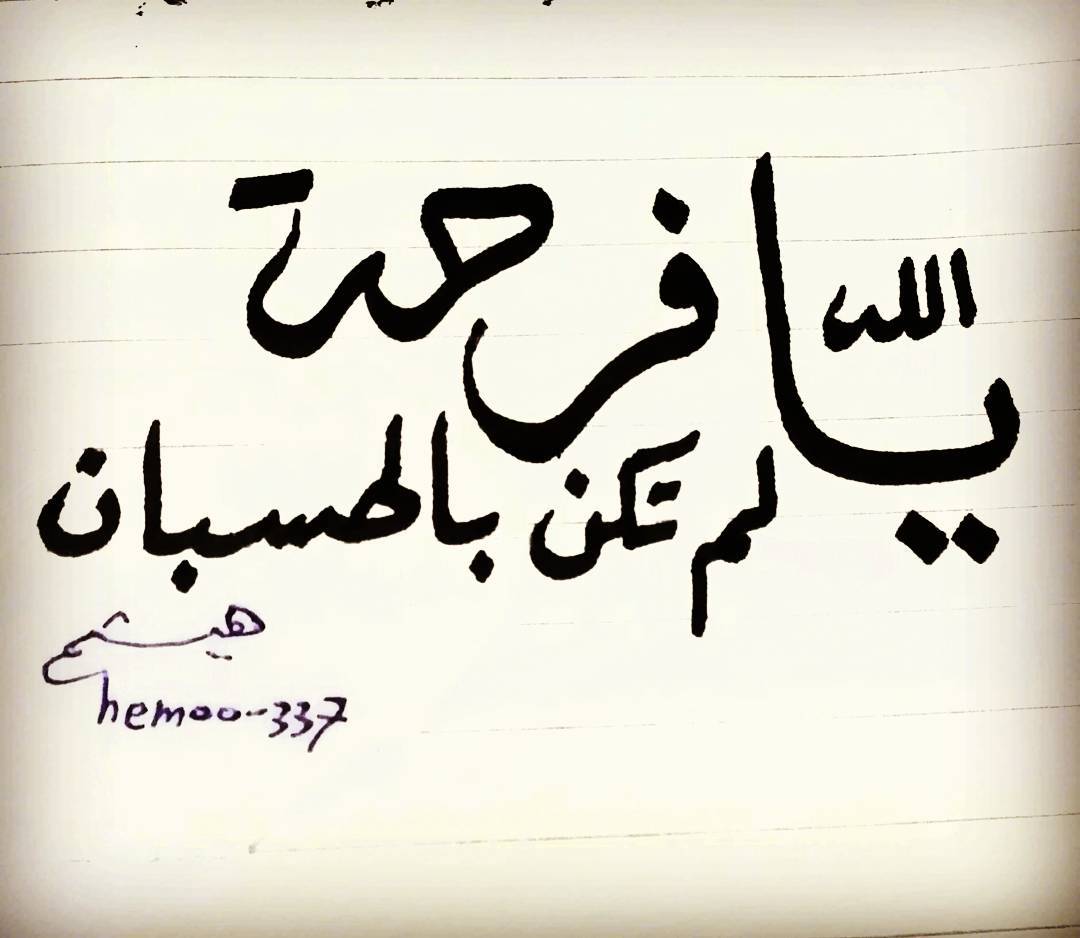 يا الله فرحة
لم تكن بالحسبان
هيثم
hemoo-337